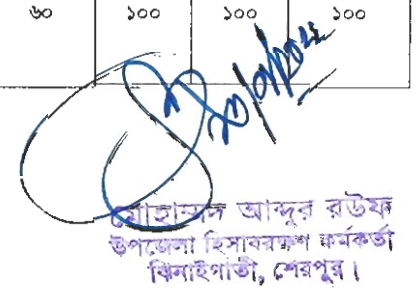 ৬০ ১০০ ১০০ ১০০
মোহাম্মদ আব্দুর রউফ
উপজেলা হিসাবরক্ষণ কর্মকর্তা
ঝিনাইগাতী, শেরপুর।